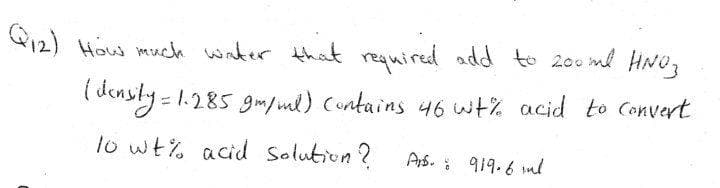 Q12) How much water that required add to 200 ml HNO3
(density = 1.285 gm/ml) Contains 46 wt% acid to Convert
10 wt% acid solution? Ans. : 919.6 ml